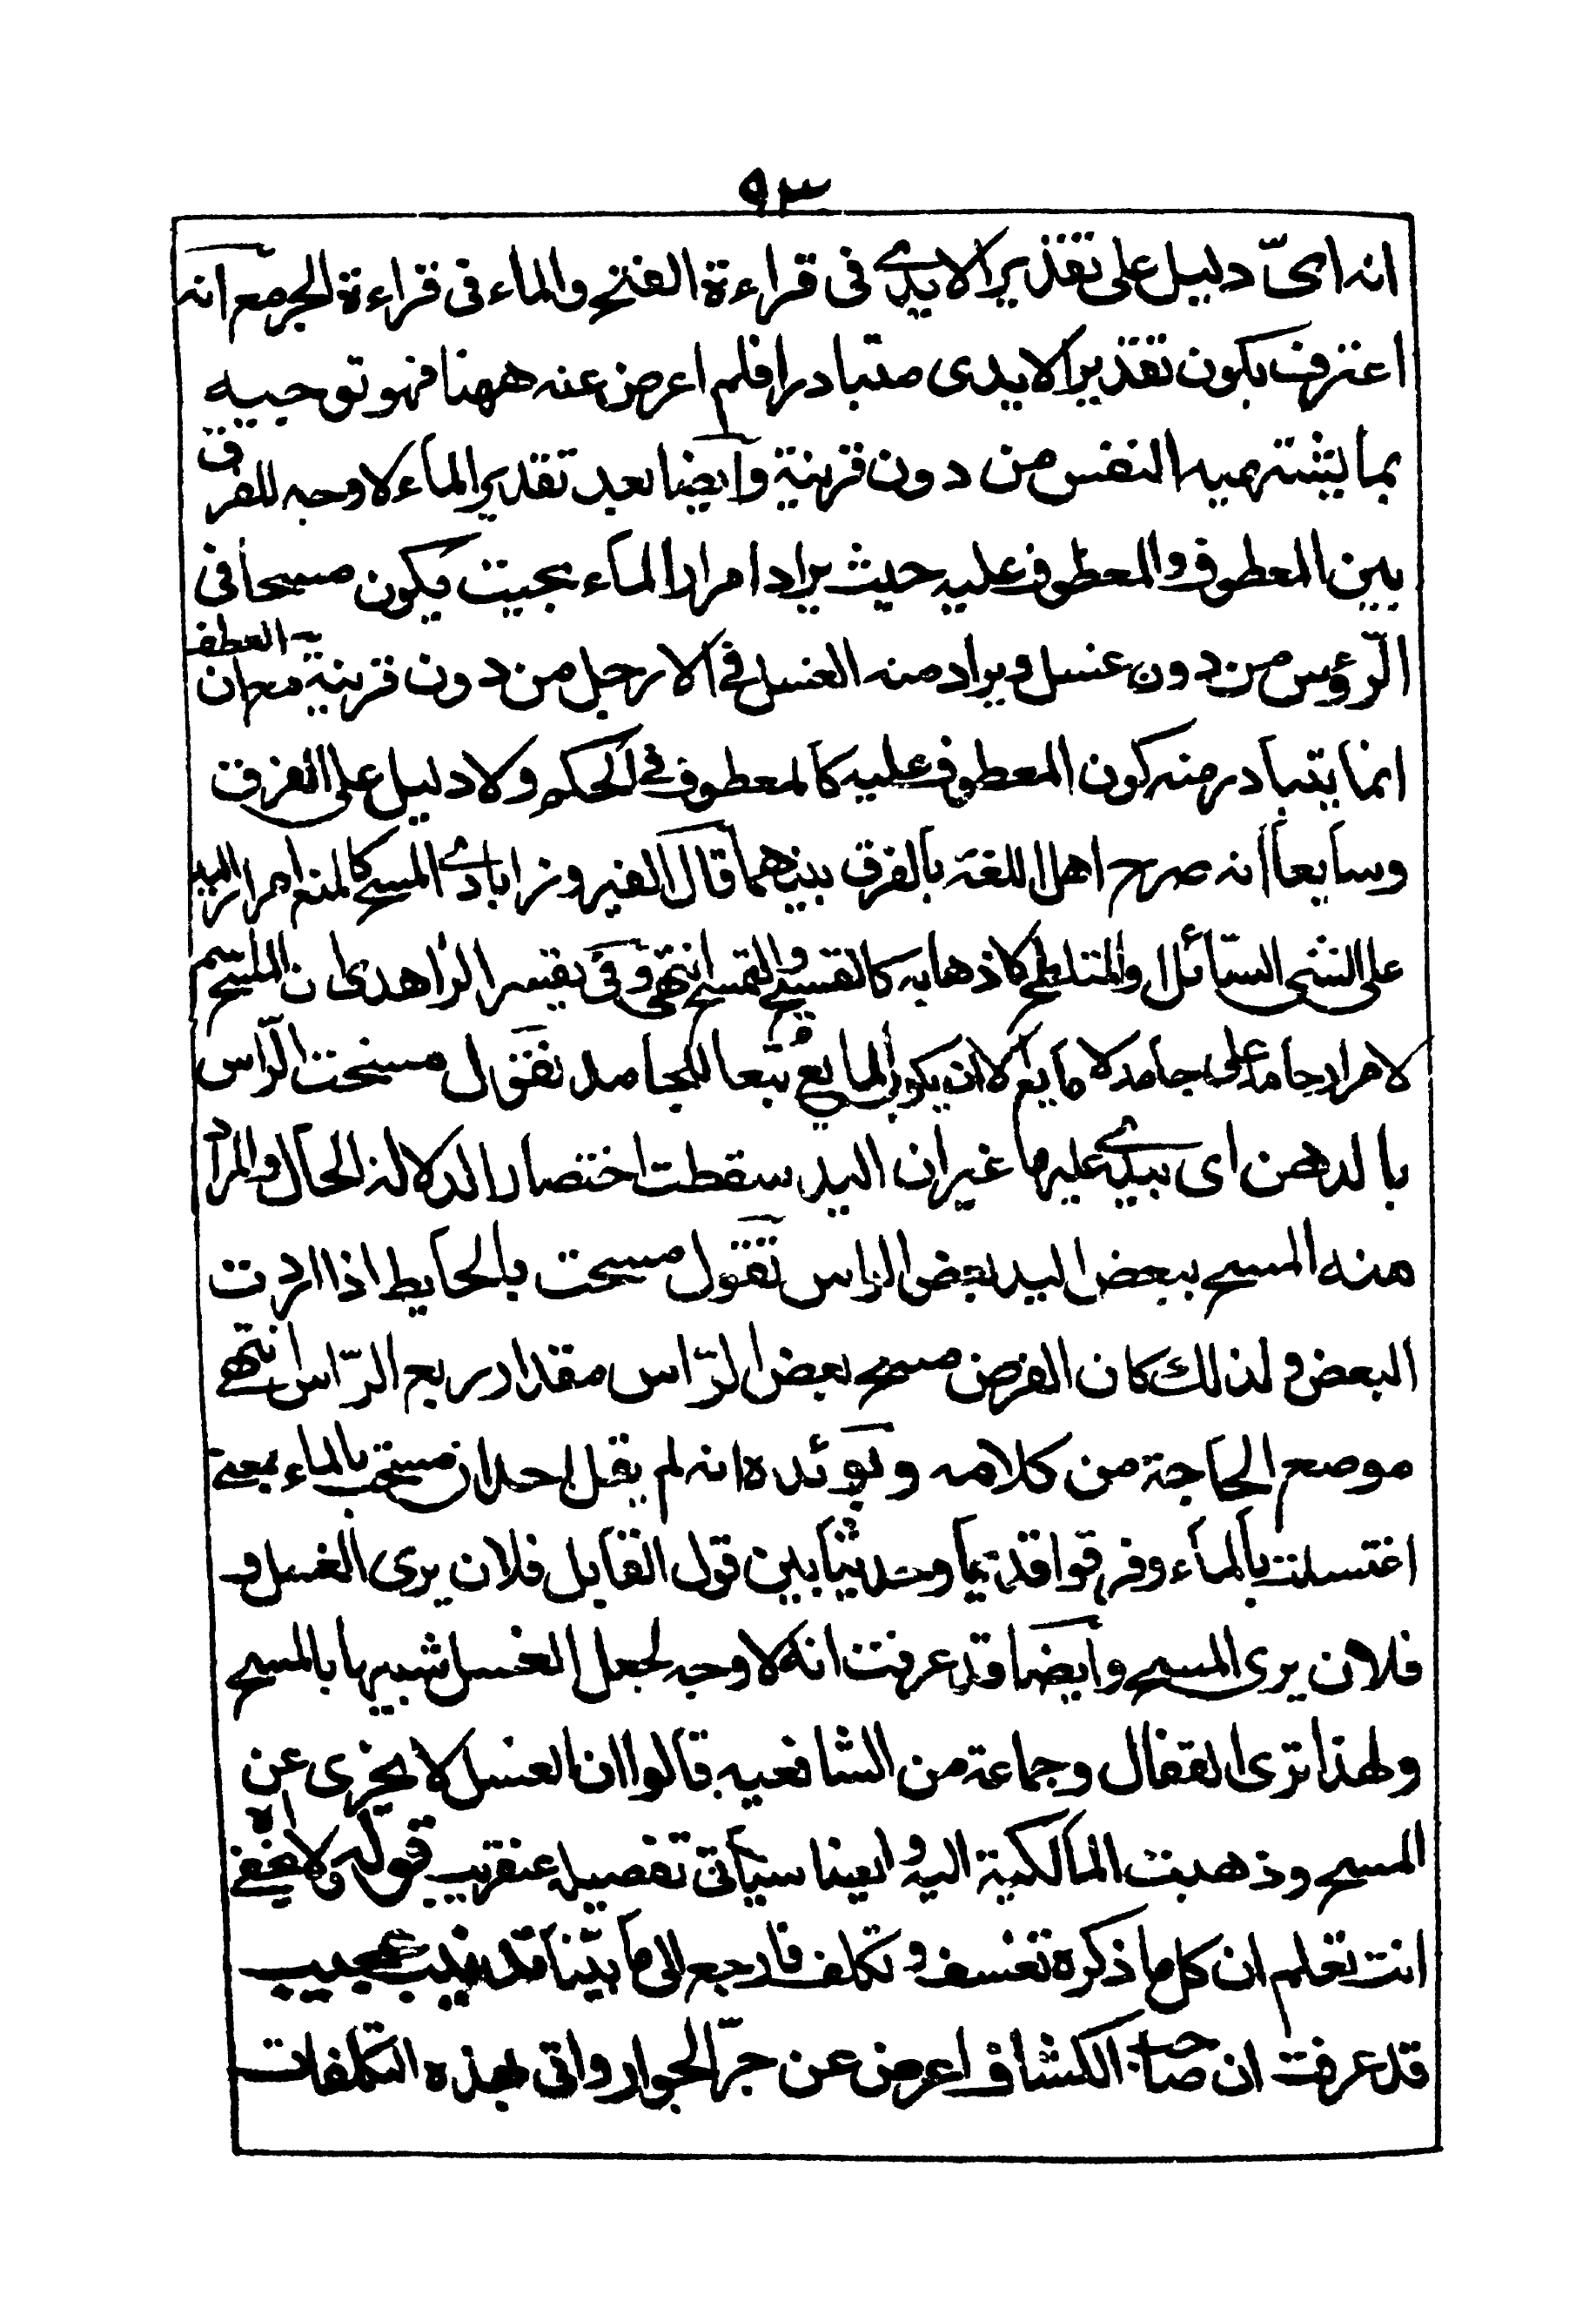 ٩٣
انه ایّ دليل على تقدير الايدي فى قراءة الفتح والماء فى قراءة الجر مع انه
اعترف بكون تقدير الايدى متبادرا فلم اعرض عنه ههنا فهو توجيه
بما يشتهيه النفس من دون قرينة وايضا بعد تقدير الماء لا وجه للفرق
بين المعطوف والمعطوف عليه حيث يراد امرار الماء بحيث يكون مسحا فى
الرّؤس من دون غسل ويراد منه الغسل فى الارجل من دون قرينة مع ان العطف
انما يتبادر منه كون المعطوف عليه كالمعطوف فى الحكم ولا دليل على الفرق
وسابعا انه صرح اهل اللغة بالفرق بينهما قال الفيروزابادي المسح كالمنع امرار اليد
على الشى السّائل او المتلطخ لاذهابه كالتمسيح والتمسح انتهى وفى تفسير الزاهدى ان المسح
لامرار جامد على جامد لا مايع الا ان يكون المايع تبعا للجامد تقول مسحت الرّاس
بالدهن اى بيدي عليها غير ان اليد سقطت اختصارا لدلالة الحال والمراد
منه المسح ببعض اليد بعض الراس تقول مسحت بالحايط اذا اردت
البعض ولذلك كان الفرض مسح بعض الرّاس مقدار ربع الرّاس انتهى
موضع الحاجة من كلامه ويؤئده انه لم يقل احد ان مسحت بالماء بمعنى
اغتسلت بالماء وفرقوا قديما وحديثا بين قول القايل فلان يرى الغسل و
فلان يرى المسح وايضا قد عرفت انه لا وجه لجعل الغسل شبيها بالمسح
ولهذا ترى القفال وجماعة من الشافعيه قالوا ان الغسل لا يجزى عن
المسح وذهبت المالكية اليه وايضا سياتى تفصيله عنقريب قوله ولا يخفى اه
انت تعلم ان كل ما ذكره تعسف وتكلف فارجع الى ما بيّنا تذنيب عجيب
قد عرفت ان صاحب الكشاف اعرض عن جرّ الجوار واتى بهذه التكلفات